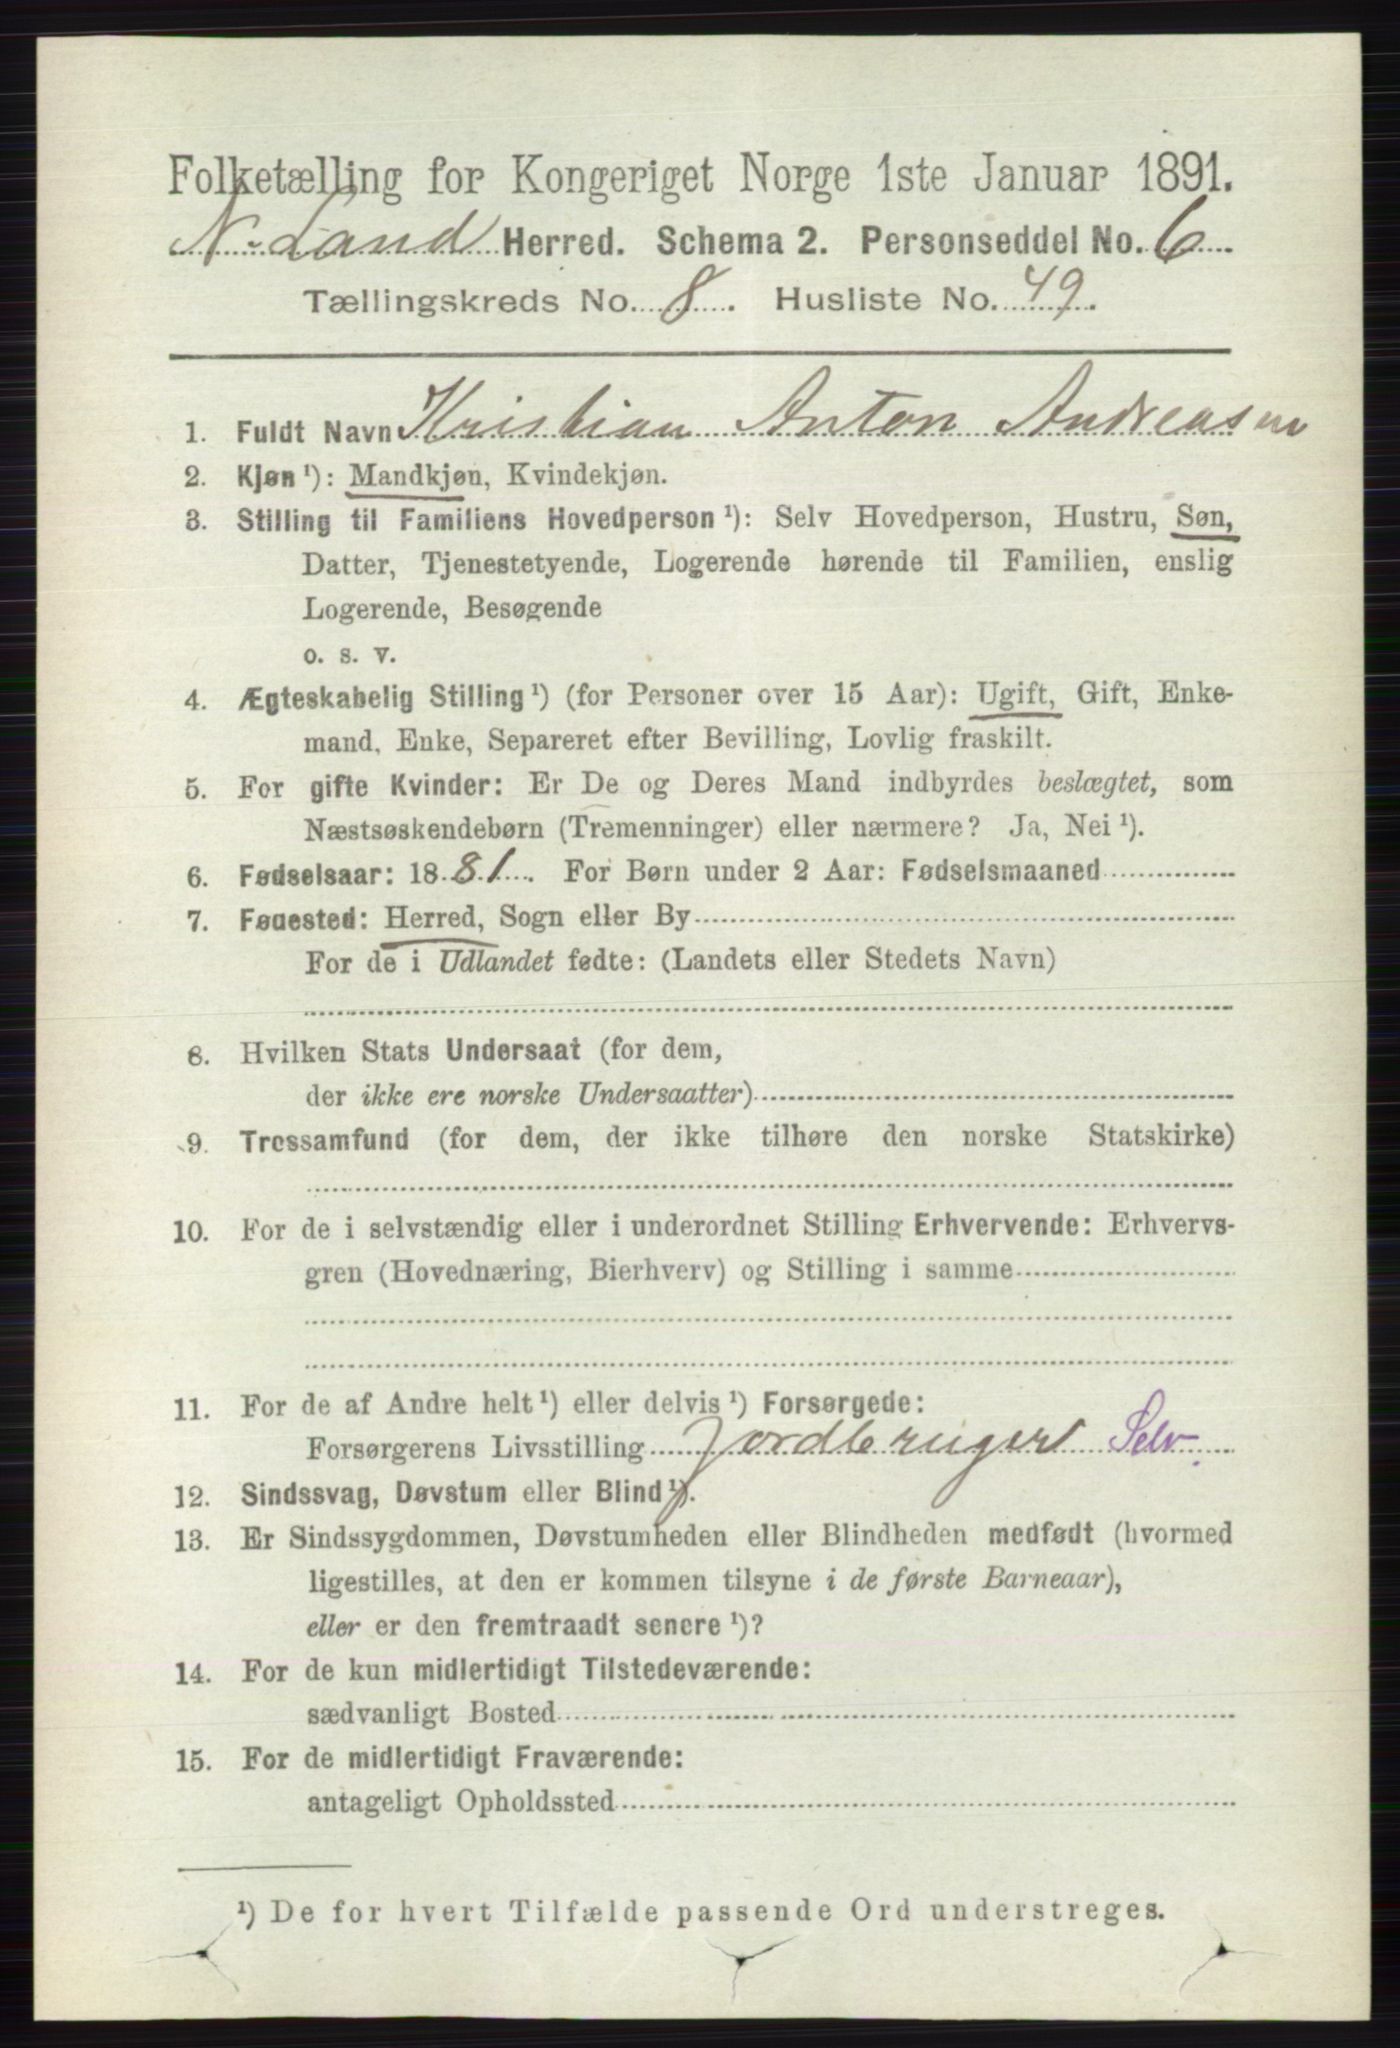 Folketælling for Kongeriget Norge 1ste Januar 1891.
N. Land Herred. Schema 2. Personseddel No. 6
Tællingskreds No. 8. Husliste No. 49.
1. Fuldt Navn Kristian Anton Andreasen
2. Kjøn ¹): Mandkjøn, Kvindekjøn.
3. Stilling til Familiens Hovedperson ¹): Selv Hovedperson, Hustru, Søn,
Datter, Tjenestetyende, Logerende hørende til Familien, enslig
Logerende, Besøgende
o. s. v.
4. Ægteskabelig Stilling ¹) (for Personer over 15 Aar): Ugift, Gift, Enke-
mand, Enke, Separeret efter Bevilling, Lovlig fraskilt.
5. For gifte Kvinder: Er De og Deres Mand indbyrdes beslægtet, som
Næstsøskendebørn (Tremenninger) eller nærmere? Ja, Nei ¹).
6. Fødselsaar: 1881. For Børn under 2 Aar: Fødselsmaaned
7. Føuested: Herred, Sogn eller By
For de i Udlandet fødte: (Landets eller Stedets Navn)
8. Hvilken Stats Undersaat (for dem,
der ikke ere norske Undersaatter)
9. Trossamfund (for dem, der ikke tilhøre den norske Statskirke)
10. For de i selvstændig eller i underordnet Stilling Erhvervende: Erhvervs-
gren (Hovednæring, Bierhverv) og Stilling i samme
11. For de af Andre helt ¹) eller delvis ¹) Forsørgede:
Forsørgerens Livsstilling Jordbruger Selv.
12. Sindssvag, Døvstum eller Blind ¹).
13. Er Sindssygdommen, Døvstumheden eller Blindheden medfødt (hvormed
ligestilles, at den er kommen tilsyne i de første Barneaar),
eller er den fremtraadt senere ¹)?
14. For de kun midlertidigt Tilstedeværende:
sædvanligt Bosted
15. For de midlertidigt Fraværende:
antageligt Opholdssted
¹) De for hvert Tilfælde passende Ord understreges.